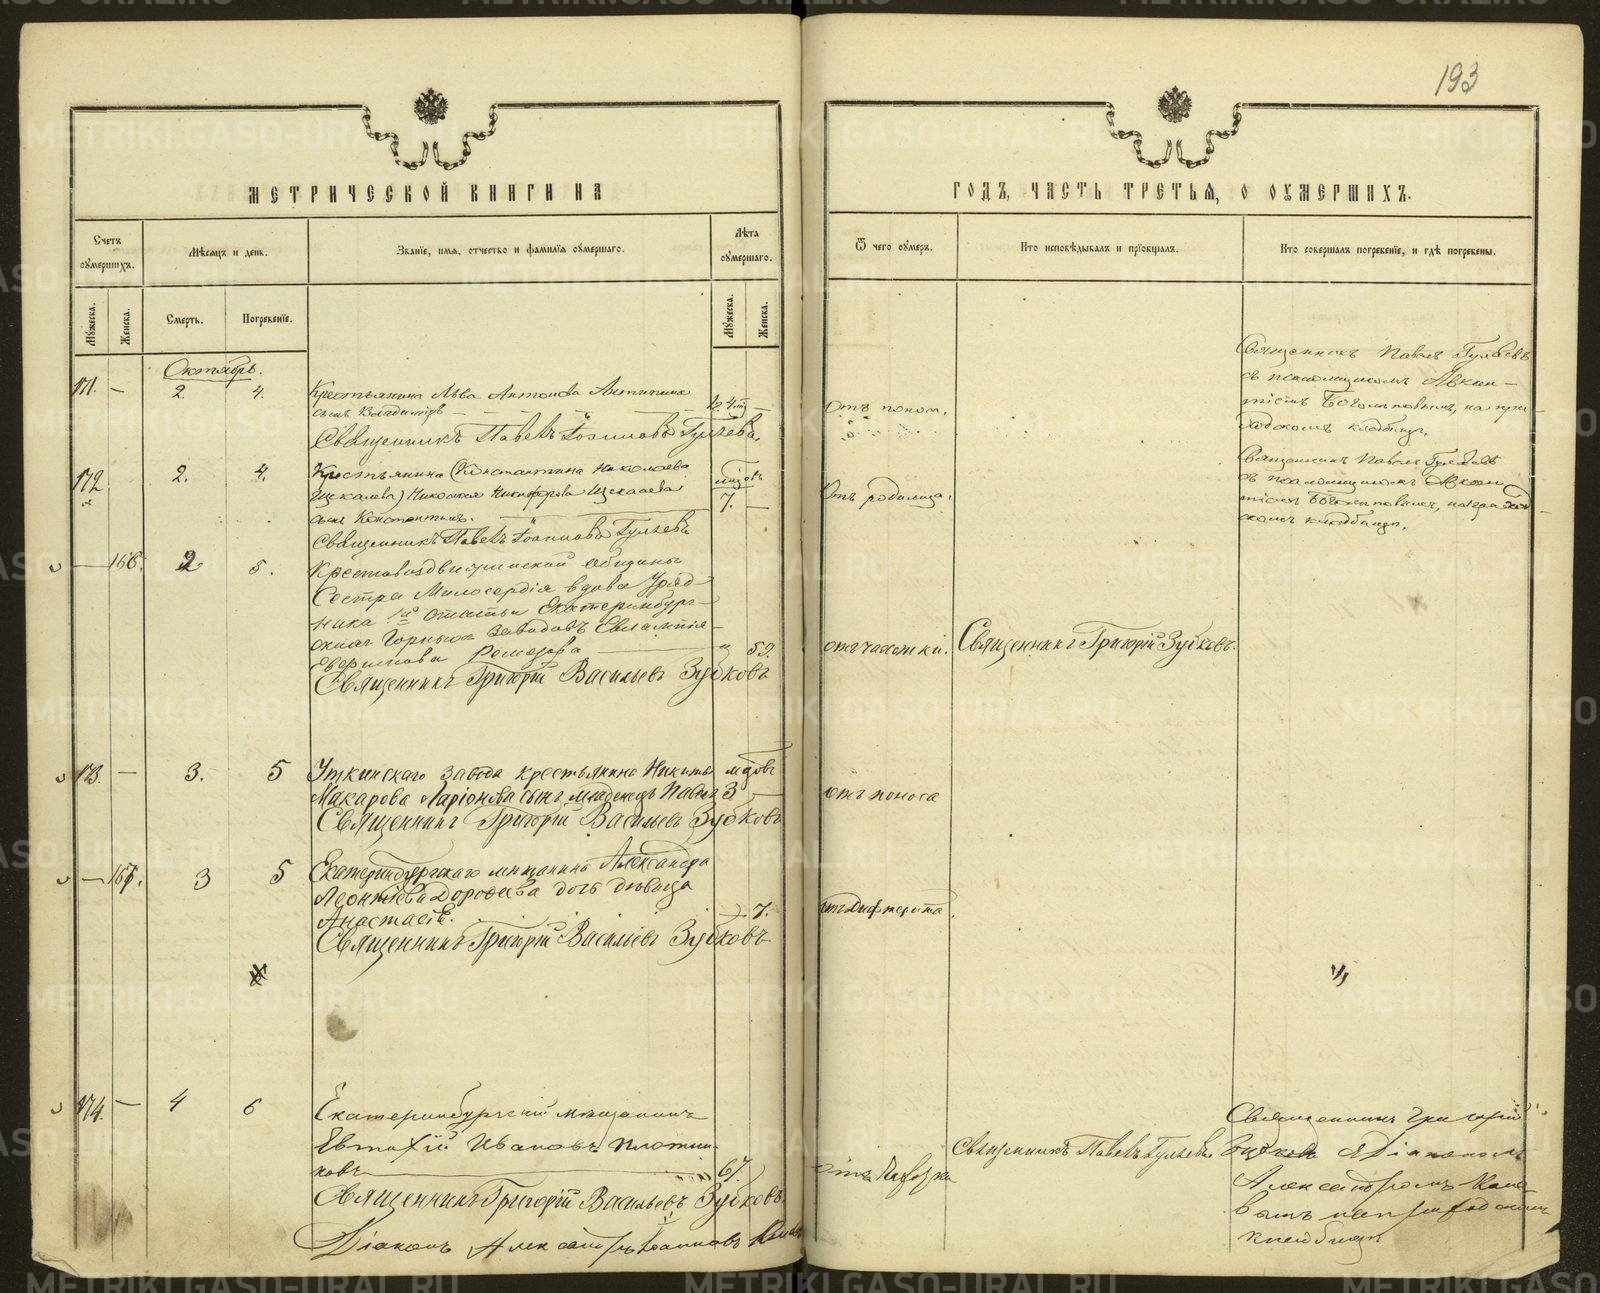 193
МЕТРИЧЕСКОЙ КНИГИ НА
ГОДЪ, ЧАСТЬ ТРЕТЬЯ, О ОУМЕРШИХЪ.
Счетъ оумершихъ.
Мѣсяцъ и день.
Званіе, имя, отчество и фамилія оумершаго.
Лѣта оумершаго.
Ѿ чего оумеръ.
Кто исповѣдывалъ и прїобщалъ.
Кто совершалъ погребеніе, и гдѣ погребены.
Мужеска.
Женска.
Смерть.
Погребеніе.
Мужеска.
Женска.
Октябрь.
171. — 2. 4.
Крестьянина Льва Антонова
сынъ Владимiръ
Священникъ Павелъ Іоанновъ Гуляевъ.
Отъ понос.
Священникъ Павелъ Гуляевъ
съ псаломщикомъ Авксен-
тіемъ Боголѣповымъ, на при-
ходскомъ кладбищѣ.
172. 2. 4.
Крестьянина (Константина Николаева
Щекалева) Николая Никифорова Щекалева
сынъ Константинъ.
7. —
Священникъ Павелъ Іоанновъ Гуляевъ
Отъ родимца.
Священникъ Павелъ Гуляевъ
съ псаломщикомъ Авксен
тіемъ Боголѣповымъ, на приход
скомъ кладбищѣ.
— 166. 2 5.
Крестовоздвиженской общины
Сестра Милосердія вдова Уряд-
ника 1й статьи Екатеринбург-
скихъ Горныхъ заводовъ Евлампія
Ремезова — 59.
Священникъ Григорій Васильевъ Зубковъ
отъ чахотки.
Священникъ Григорій Зубковъ.
173. — 3. 5
Уткинскаго завода крестьянина Никиты
Макарова Ларіонова сынъ младенецъ Павелъ 3 —
Священникъ Григорій Васильевъ Зубковъ
отъ поноса
— 167. 3 5
Екатеринбургскаго мѣщанина Александра
Леонтьева Дорофеева дочь дѣвица
Анастасія. — 7.
Священникъ Григорій Васильевъ Зубковъ
отъ дифтерита.
174. — 4 6
Екатеринбургскій мѣщанинъ
Евтихій Ивановъ Плотни-
ковъ 67.
Священникъ Григорій Васильевъ Зубковъ.
Діаконъ Александръ Іоанновъ
Священникъ Павелъ Гуляевъ
Священникъ Григорій
Зубковъ съ Діакономъ
Александромъ
вымъ на приходскомъ
кладбищѣ
METRIKI.GASO-URAL.RU